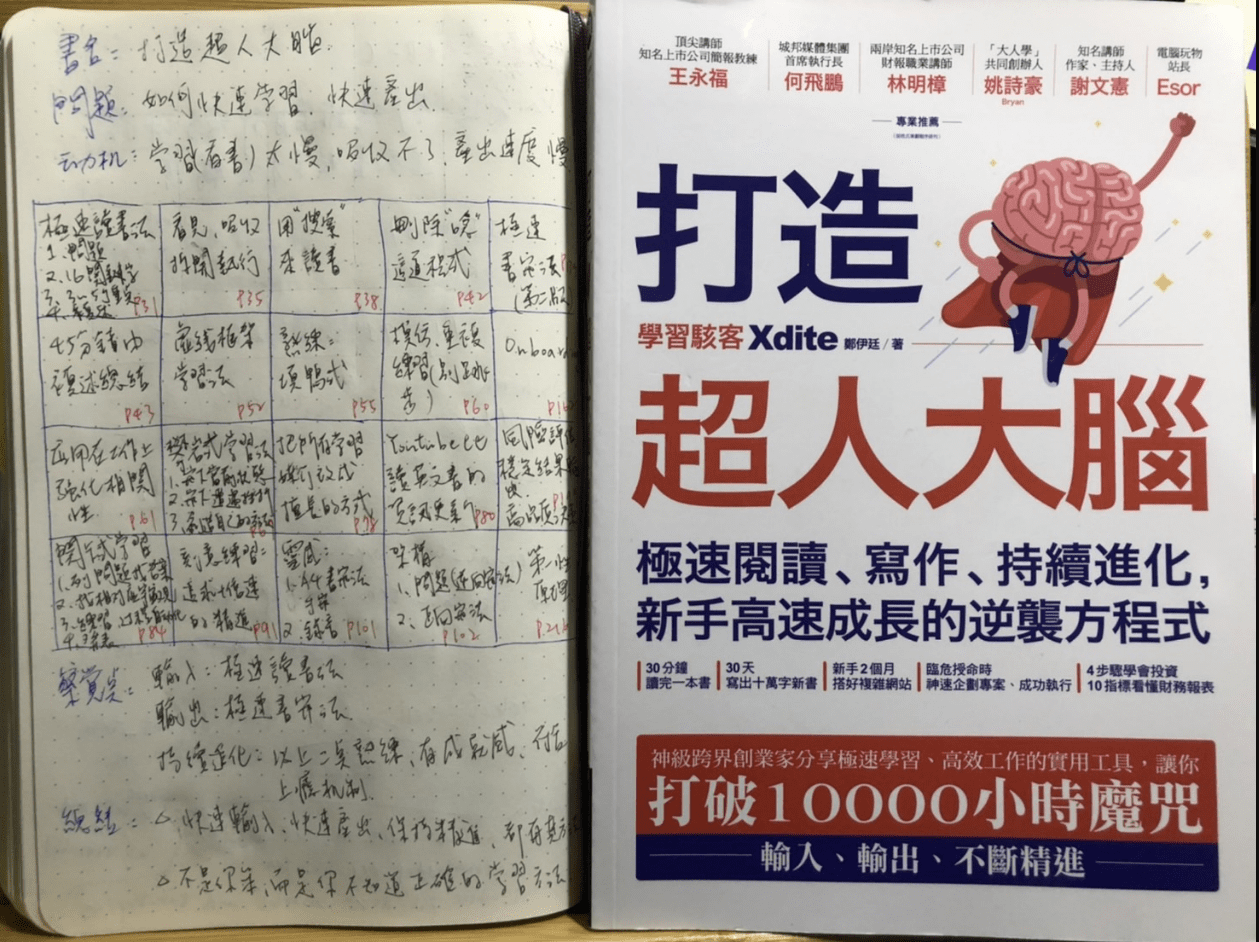 書名: 打造超人大腦.
問題: 如何快速学習, 快速產出.
动力机: 学習(看書)太慢,吸收不了,產出速度慢
極速讀書法
1.問題
2.16関鍵字
P31
看見、吸收
拆開執行
P35
用"搜索"
來讀書
P38
刪除"唸"
這道程式
P42
極速
書寫法
(第二
45分鐘内
複述總結
P43
虛线框架
学習法
P52
熟練:
填鴨式
P55
模仿、重複
練習(別跳
步)
P60
Onboar
应用在工作上
強化相関
性
P61
攀岩式学習法
3.
把所有学習
擅長的方式
P78
Youtube
讀英文書的
P80
風險評估
穩定結果
高品质
関鍵式学習
1.列問題找答案
P84
刻意練習:
追求
的精進
P91
靈感:
1.A4書寫法
2.錄音
P101
架構
1.問題
2.
P102
第一性
原理
P216
察覚点: 輸入: 極速讀書法
輸出: 極速書写法
持續進化: 以上二点熟練,有成就感、
上癮机制
總結: △ 快速輸入、快速產出、保持精進, 都有其方
△ 不是你笨,而是你不知道正確的学習方法
頂尖講師
知名上市公司簡報教練
王永福
城邦媒體集團
首席執行長
何飛鵬
兩岸知名上市公司
財報職業講師
林明樟
「大人學」
共同創辦人
姚詩豪
Bryan
知名講師
作家、主持人
謝文憲
電腦玩物
站長
Esor
專業推薦
打造
學習駭客 Xdite 鄭伊廷/著
超人大腦
極速閱讀、寫作、持續進化,
新手高速成長的逆襲方程式
30分鐘
讀完一本書
30天
寫出十萬字新書
新手2個月
搭好複雜網站
臨危授命時
神速企劃專案、成功執行
4步驟學會投資
10指標看懂財務報表
神級跨界創業家分享極速學習、高效工作的實用工具,讓你
打破10000小時魔咒
輸入、輸出、不斷精進